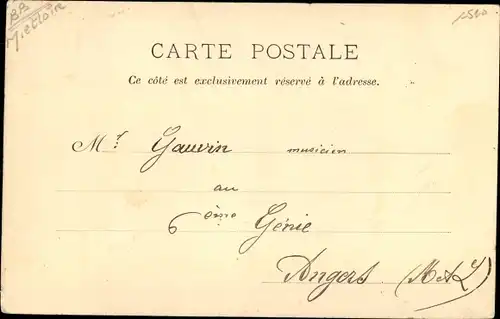 BB
M. et Loire
CARTE POSTALE
Ce côté est exclusivement réservé à l'adresse.
Mr Gauvin musicien
au
6ème Génie
Angers (M & L)